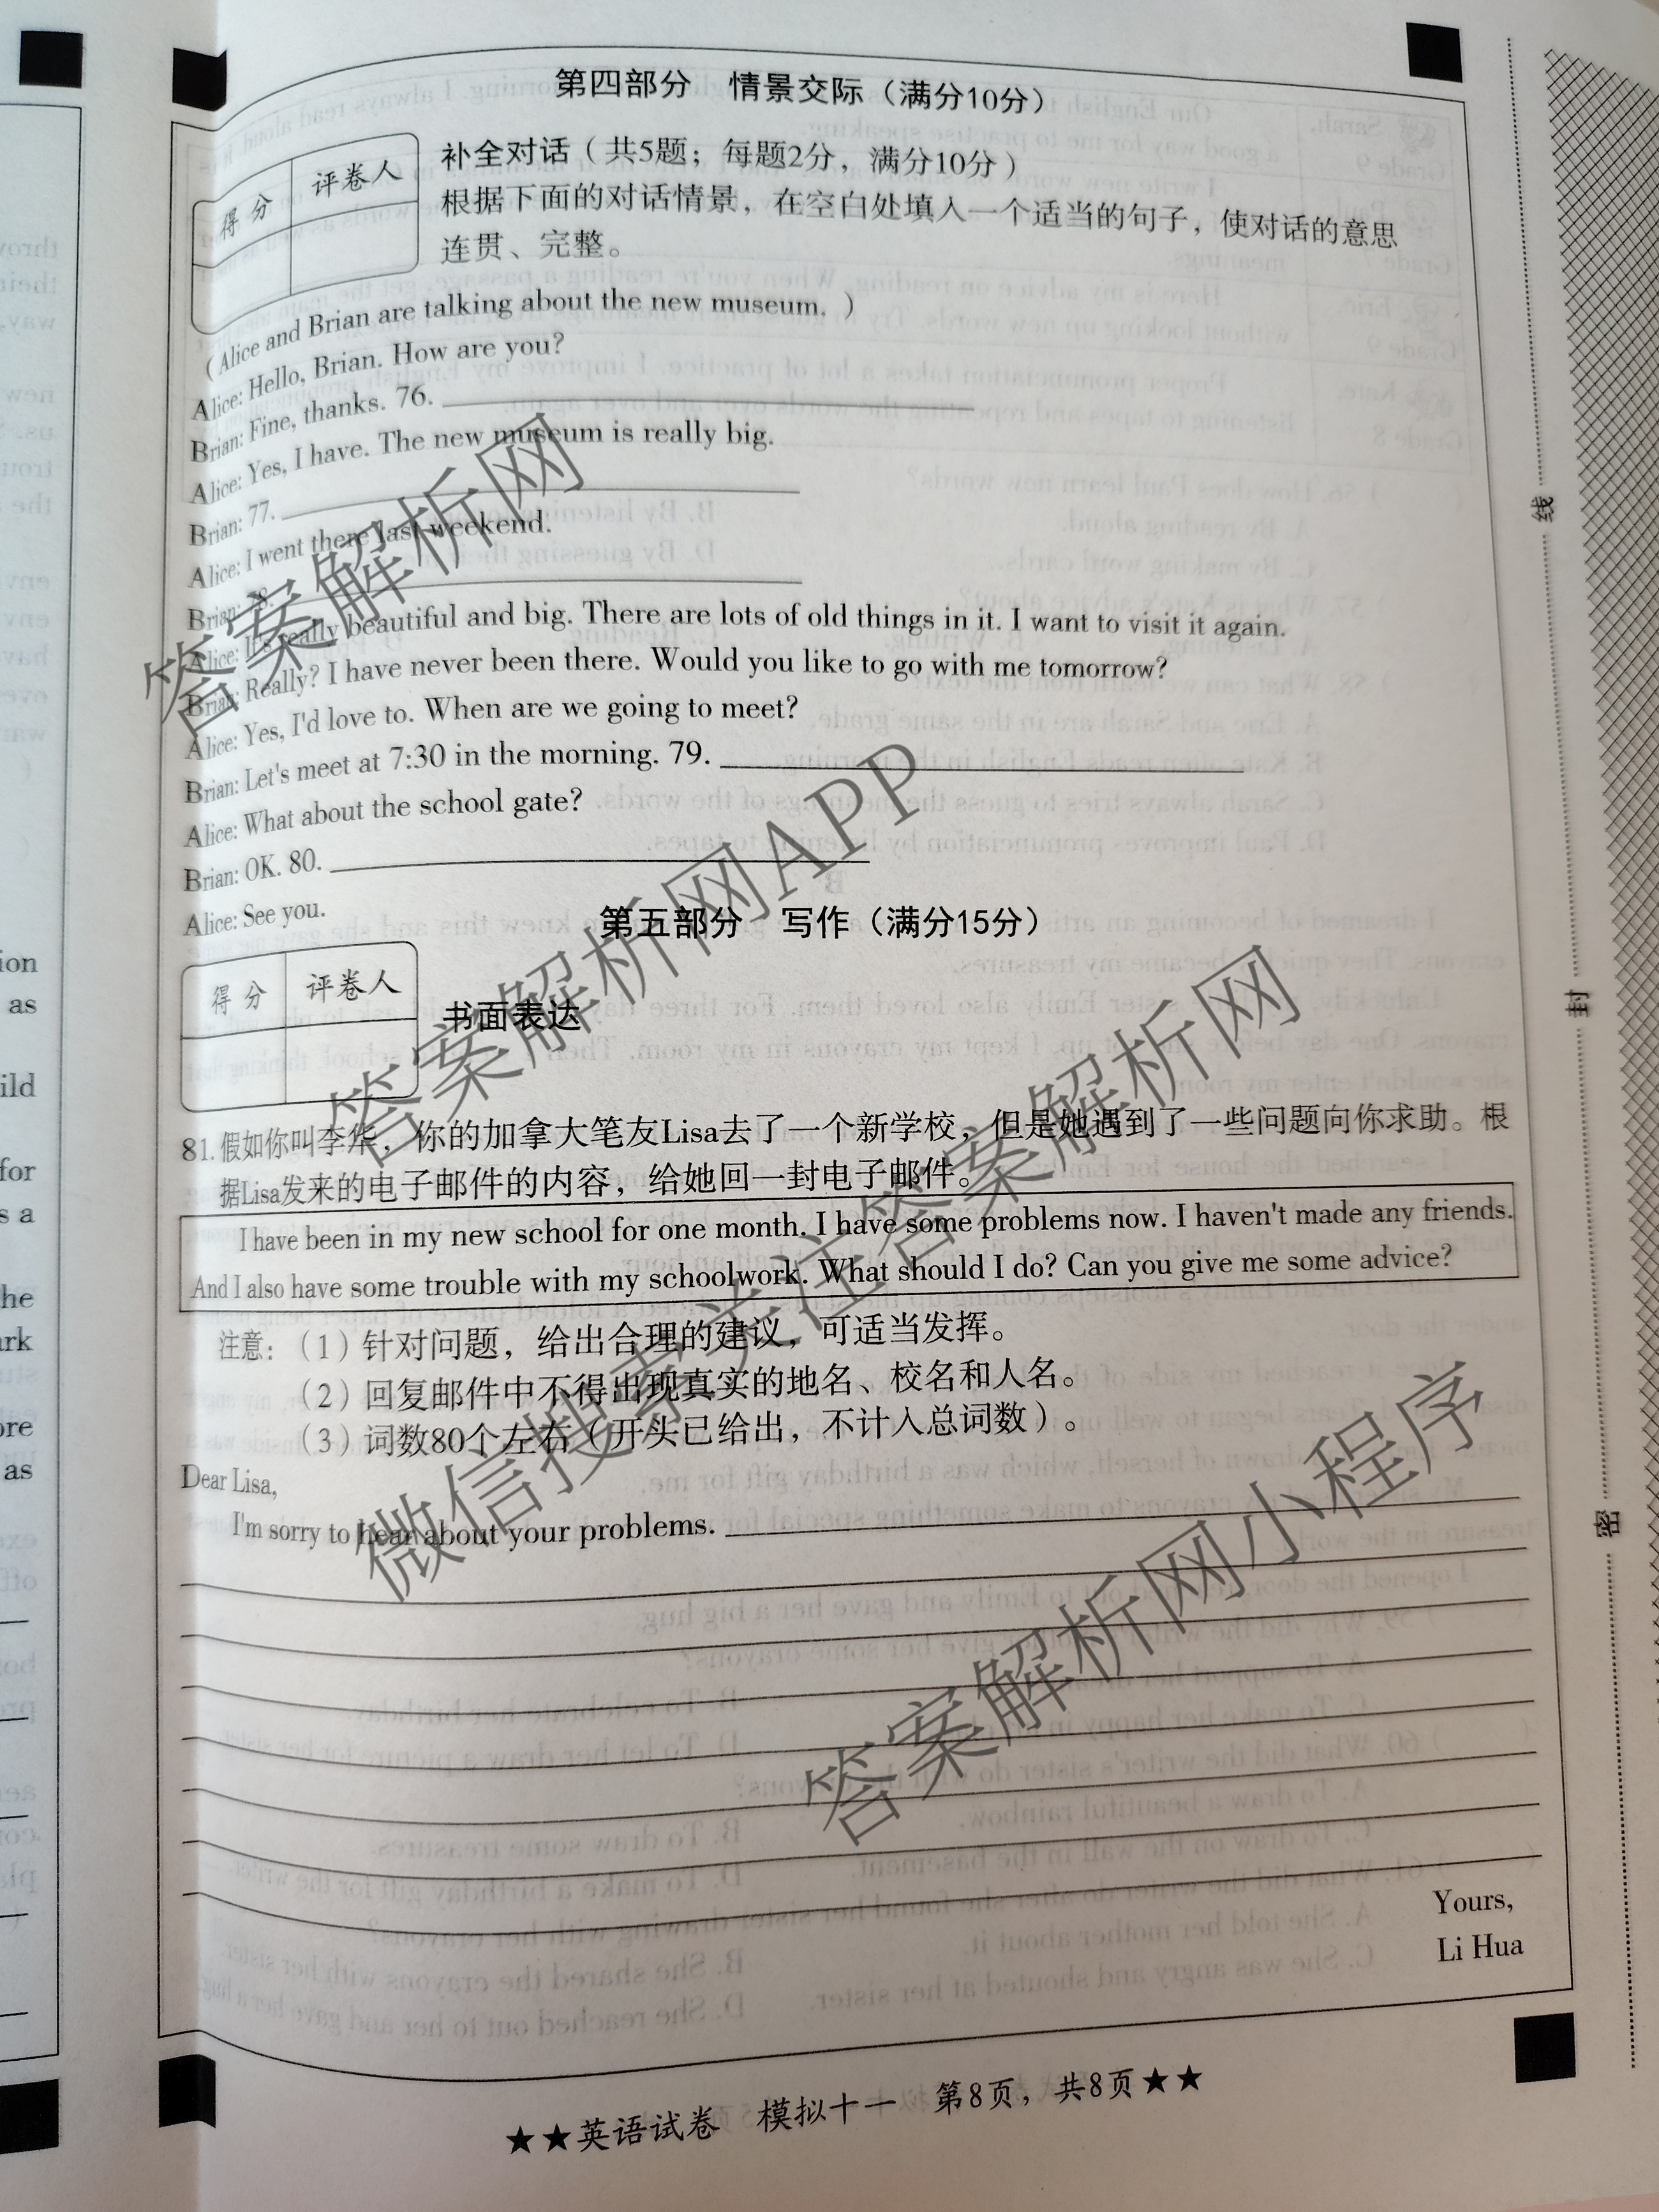 第四部分 情景交际（满分10分）
得分 评卷人
补全对话（共5题；每题2分，满分10分）
根据下面的对话情景，在空白处填入一个适当的句子，使对话的意思
连贯、完整。
(Alice and Brian are talking about the new museum. )
Alice: Hello, Brian. How are you?
Brian: Fine, thanks. 76.
Alice: Yes, I have. The new museum is really big.
Brian: 77.
Alice: I went there last weekend.
Brian: 78.
Alice: It's really beautiful and big. There are lots of old things in it. I want to visit it again.
Brian: Really? I have never been there. Would you like to go with me tomorrow?
Alice: Yes, I'd love to. When are we going to meet?
Brian: Let's meet at 7:30 in the morning. 79.
Alice: What about the school gate?
Brian: OK. 80.
Alice: See you.
第五部分 写作（满分15分）
得分 评卷人
书面表达
81. 假如你叫李华，你的加拿大笔友Lisa去了一个新学校，但是她遇到了一些问题向你求助。根
据Lisa发来的电子邮件的内容，给她回一封电子邮件。
I have been in my new school for one month. I have some problems now. I haven't made any friends.
And I also have some trouble with my schoolwork. What should I do? Can you give me some advice?
注意：（1）针对问题，给出合理的建议，可适当发挥。
（2）回复邮件中不得出现真实的地名、校名和人名。
（3）词数80个左右（开头已给出，不计入总词数）。
Dear Lisa,
I'm sorry to hear about your problems.
Yours,
Li Hua
★★英语试卷 模拟十一 第8页，共8页★★
线
封
密
答案解析网
答案解析网APP
微信搜索关注答案解析网
答案解析网小程序
ion
as
ild
for
s a
he
ark
ore
as